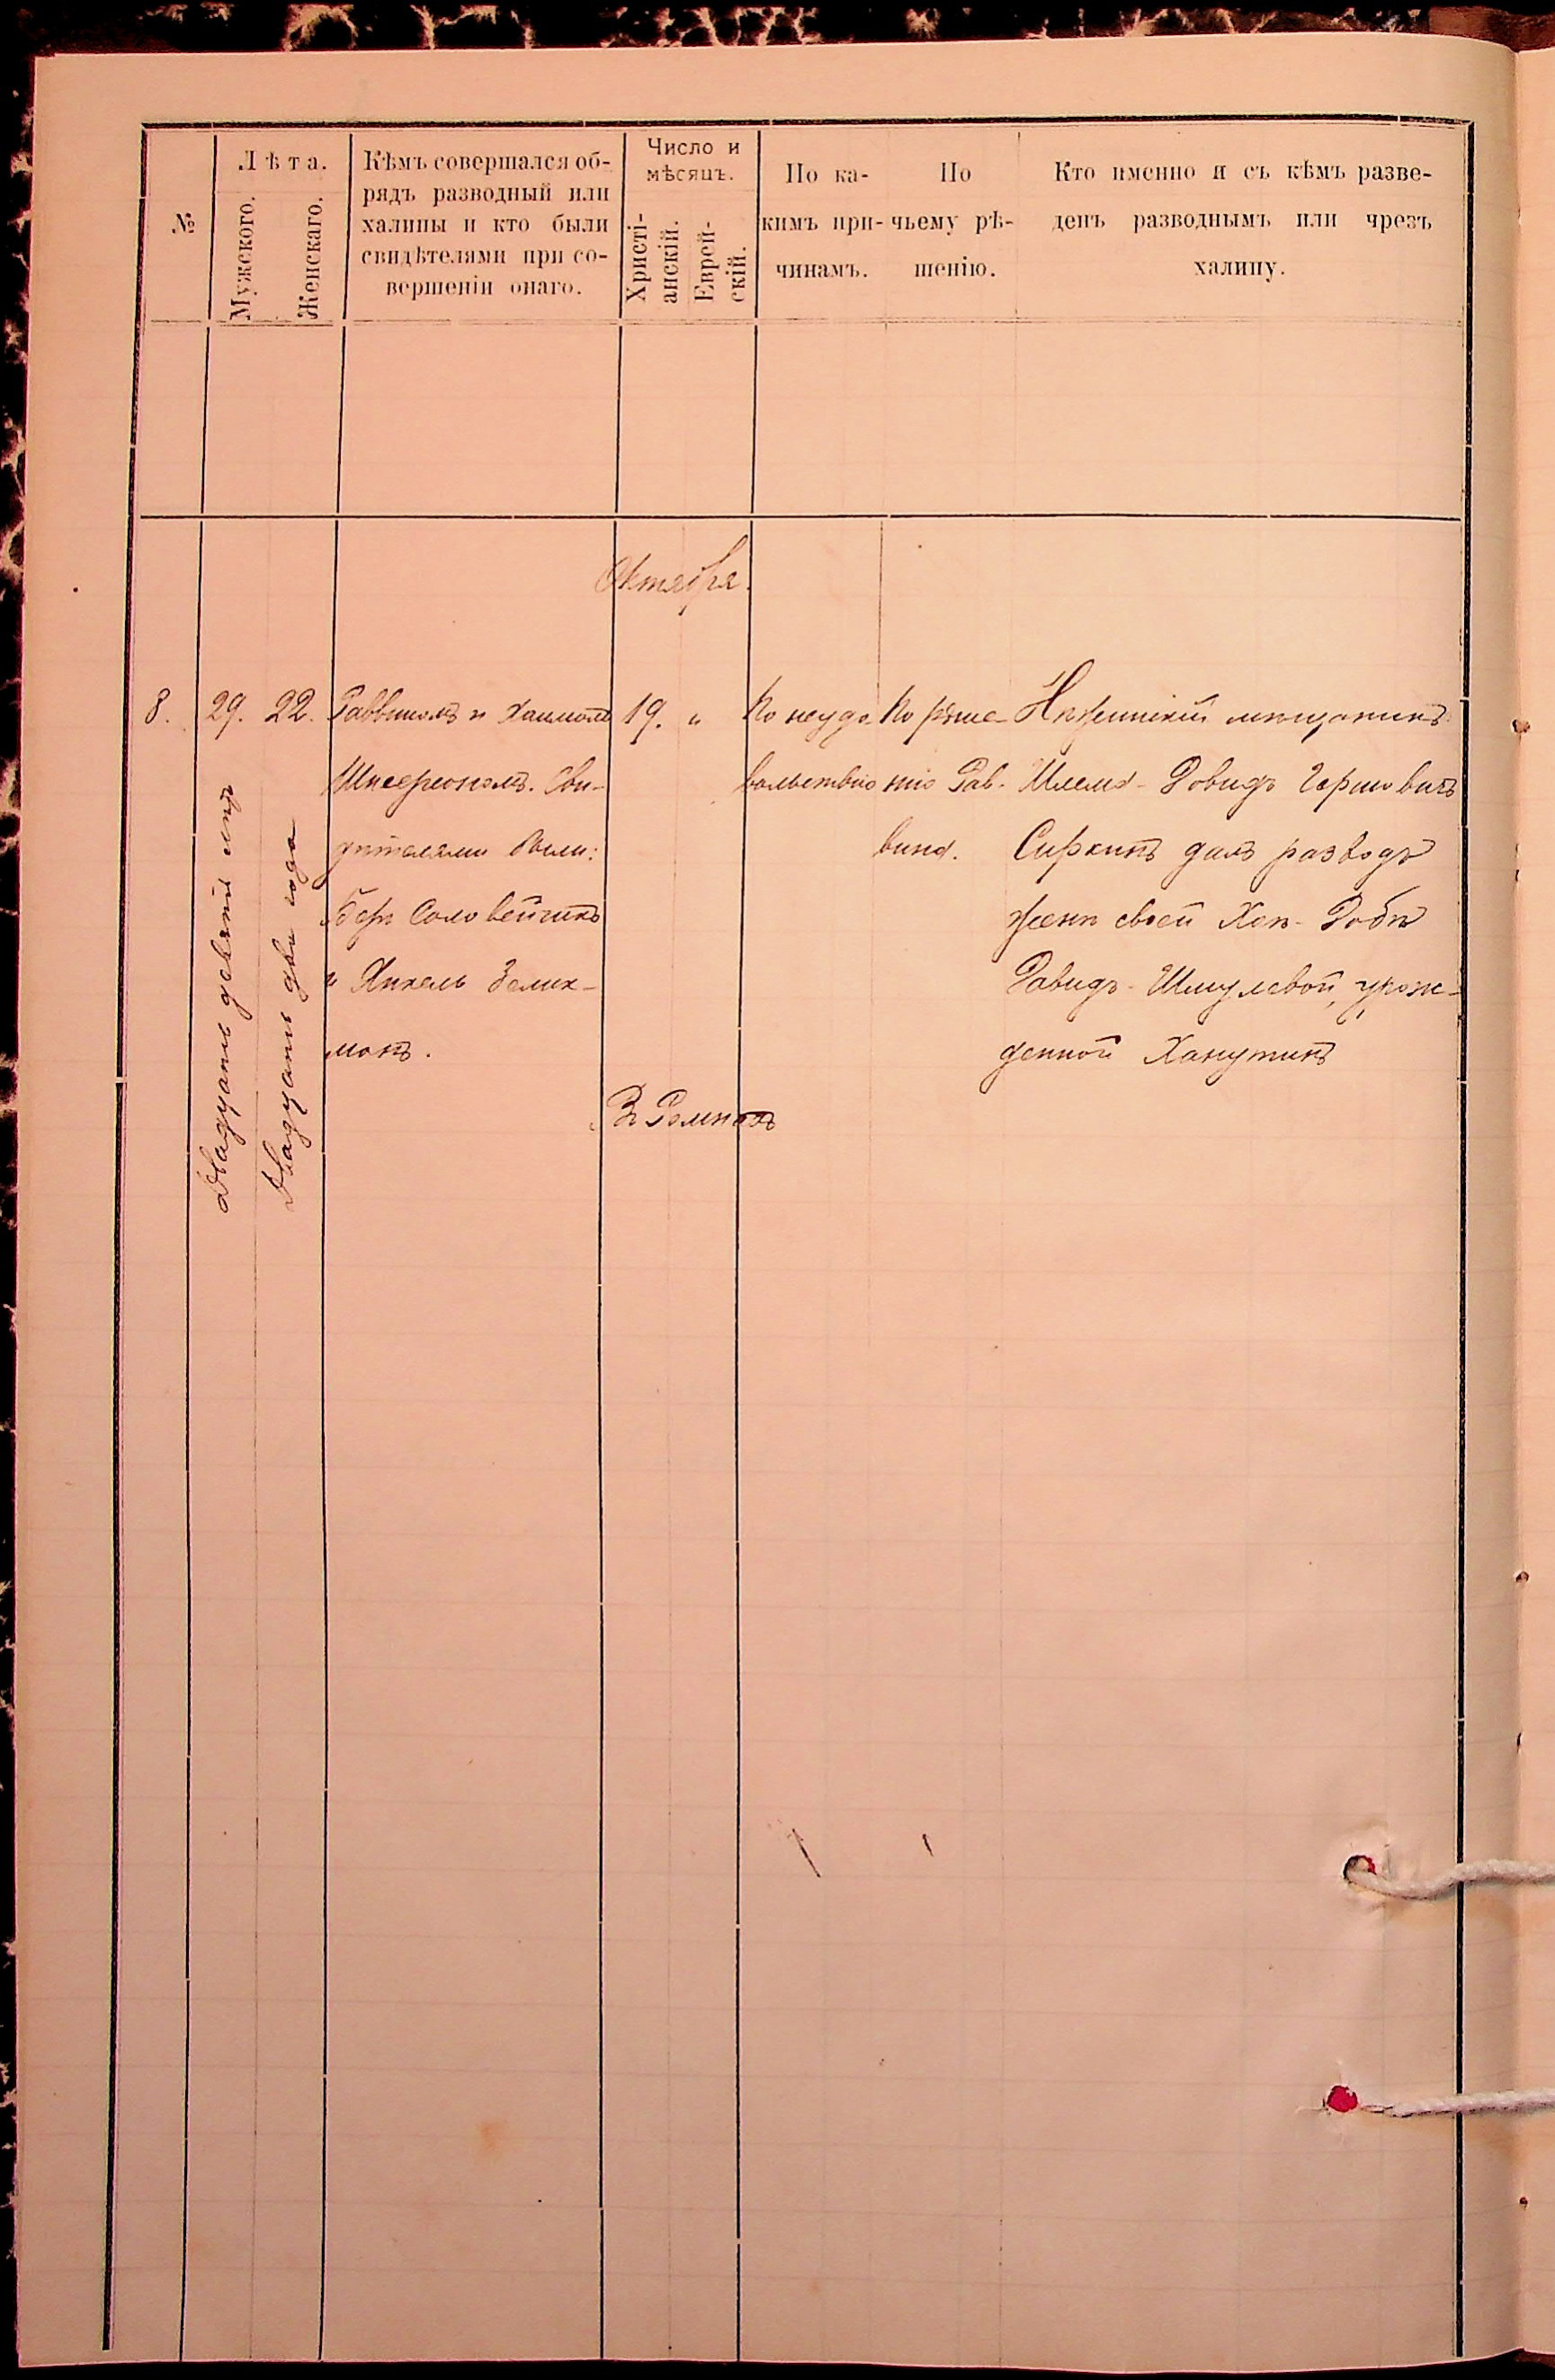 №
Лѣта.
Мужского.
Женскаго.
Кѣмъ совершался об-
рядъ разводный или
халицы и кто были
свидѣтелями при со-
вершеніи онаго.
Число и
мѣсяцъ.
Христі-
анскій.
Еврей-
скій.
По ка-
кимъ при-
чинамъ.
По
чьему рѣ-
шенію.
Кто именно и съ кѣмъ разве-
денъ разводнымъ или чрезъ
халицу.
Октября.
8.
29.
Двадцать девять лѣтъ
22.
Двадцать два года
Раввиномъ и Хаимомъ
Шнееръономъ. Сви-
дѣтелями были:
Беръ Соловейчикъ
и Хикель Зелик-
манъ.
19. "
Въ Ромнахъ
По неудо-
вольствію
По рѣше-
нію Рав-
вина.
Нѣжинскій мѣщанинъ
Шлема-Довидъ Гершовичъ
Сиркинъ далъ разводъ
женѣ своей Хаѣ-Добѣ
Давидъ-Шмулевой, урож-
денной Ханутинъ